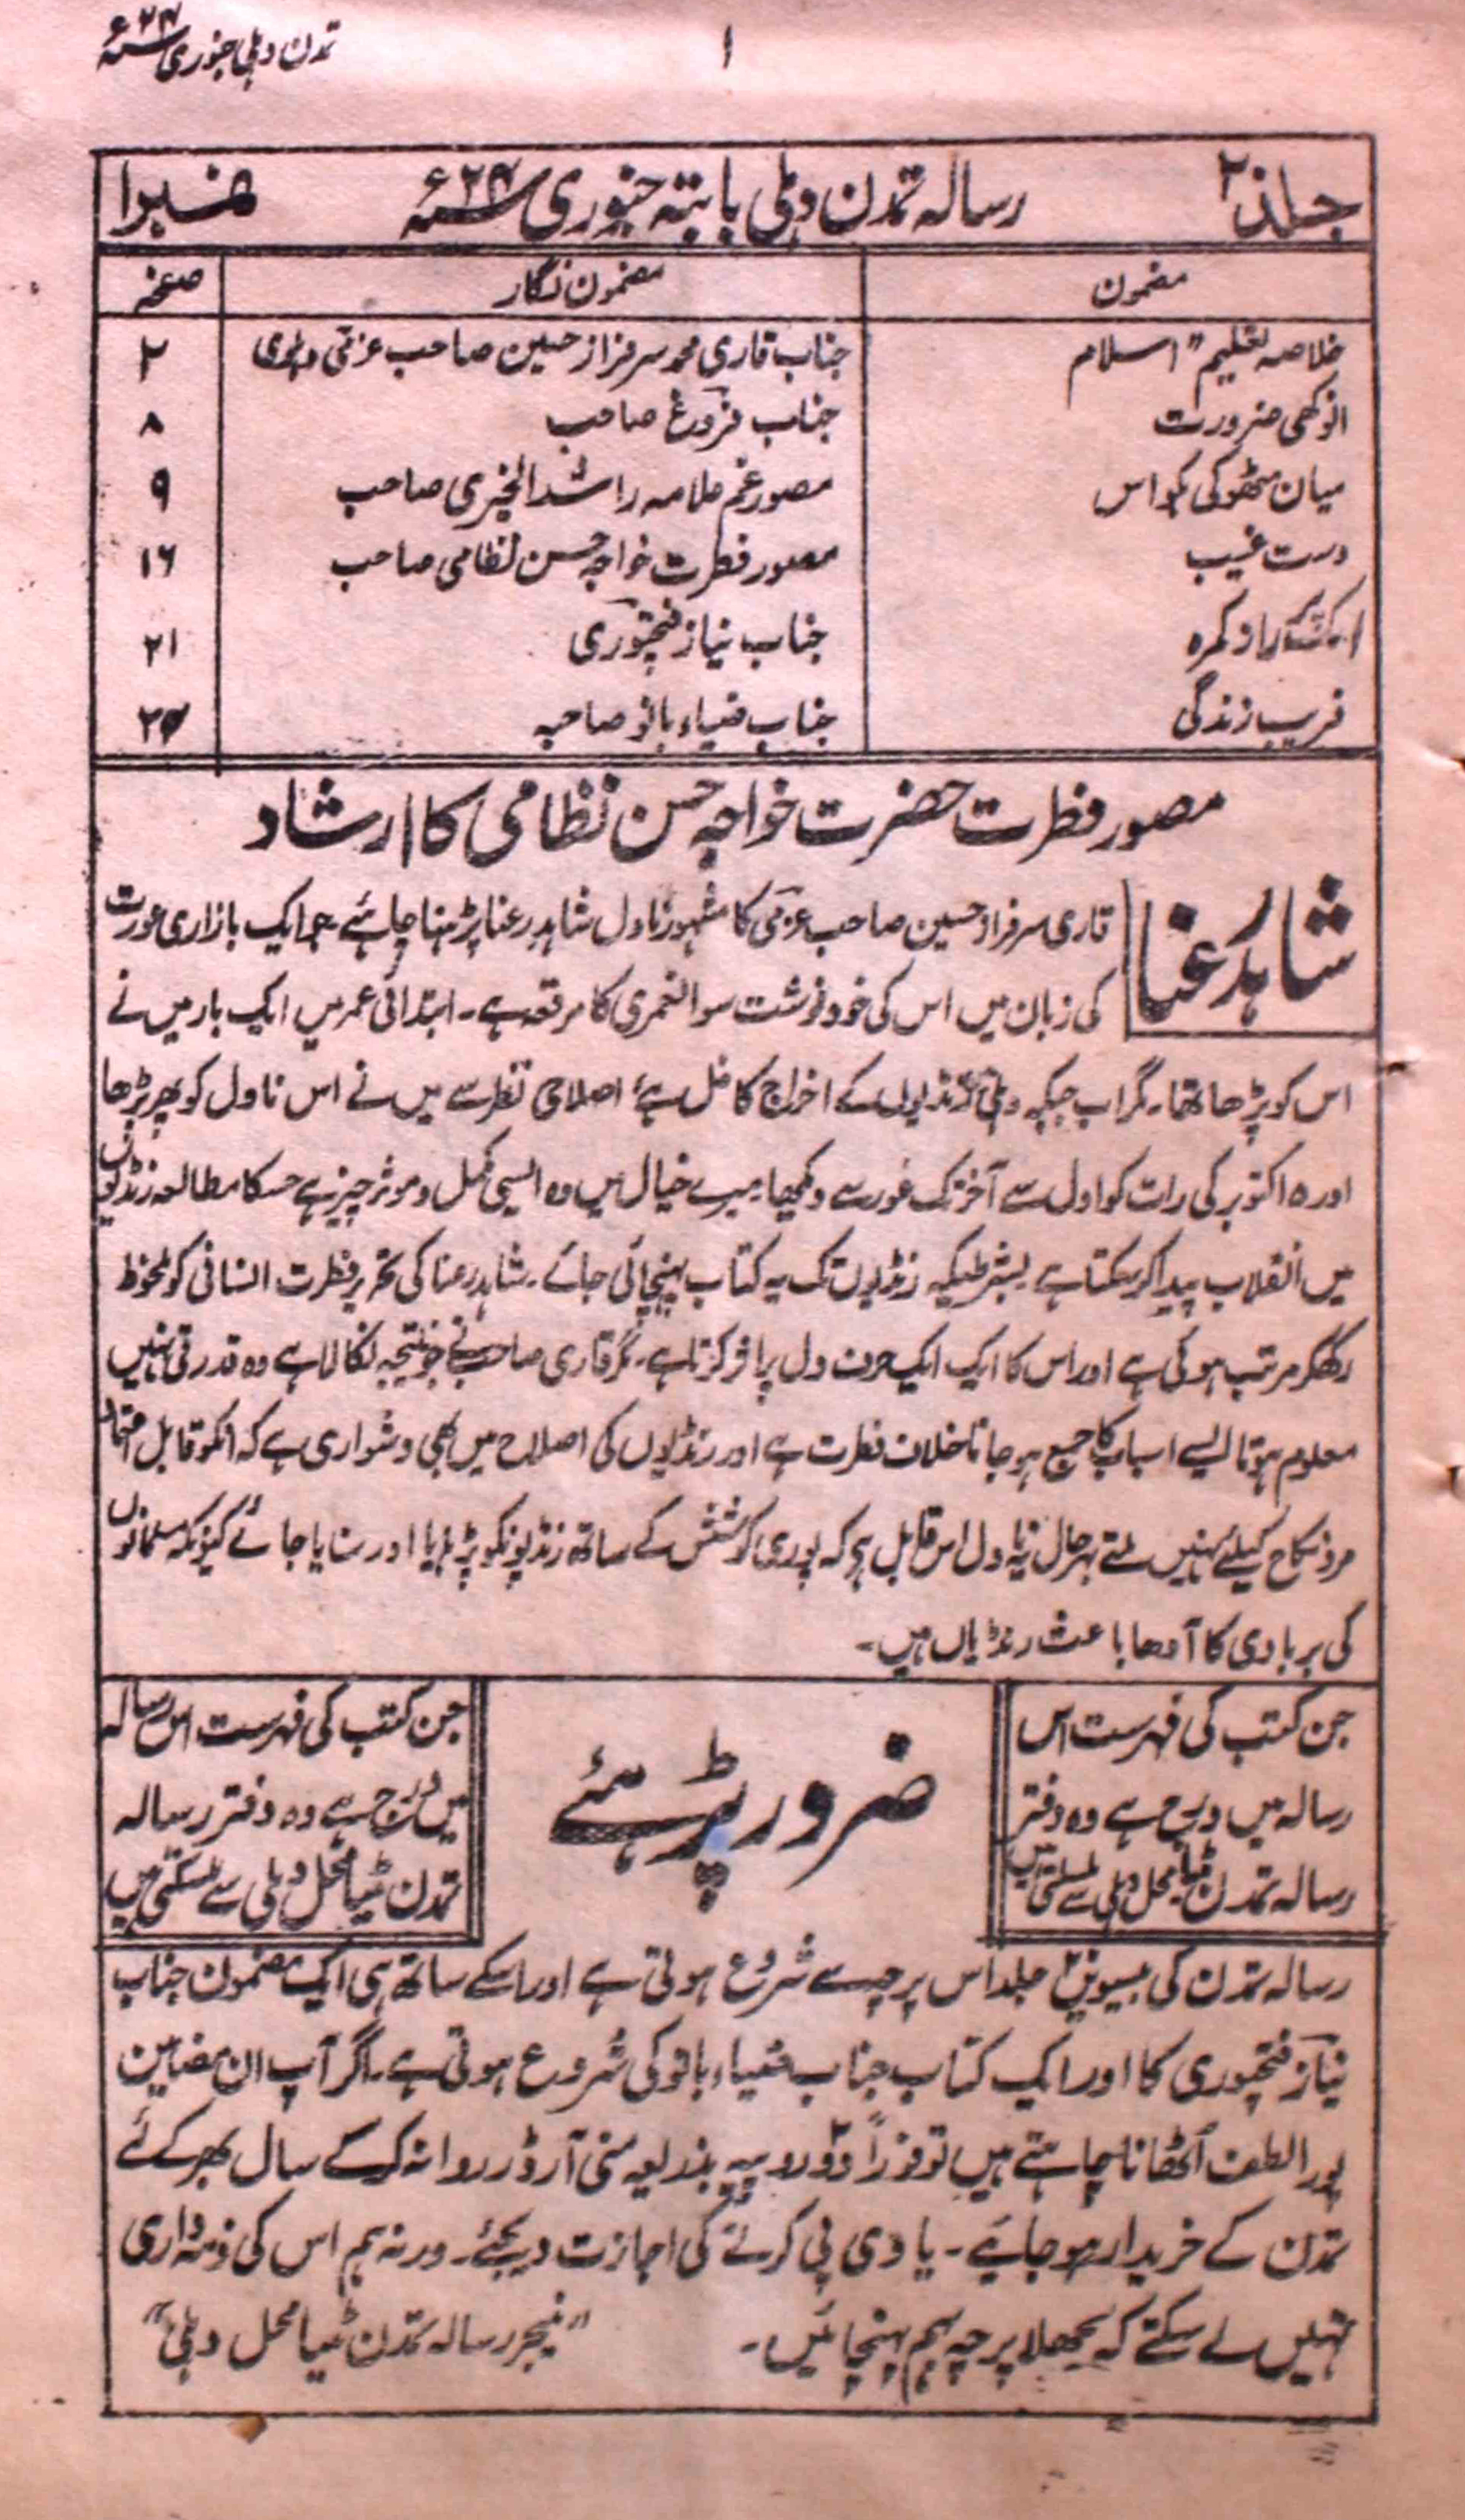 تمدن دہلی جنوری ۲۴ء
۱
جلد ۲۰ رسالہ تمدن دہلی بابتہ جنوری ۲۴ء نمبر۱
مضمون مضمون نگار صفحہ
خلاصہ تعلیم اسلام جناب قاری محمد سرفراز حسین صاحب عزمی دہلوی ۲
انوکھی ضرورت جناب فروغ صاحب ۸
میاں مٹھو کی بکواس مصور غم علامہ راشد الخیری صاحب ۹
دست غیب مصور فطرت خواجہ حسن نظامی صاحب ۱۶
جناب نیاز فتحپوری ۲۱
فریب زندگی جناب ضیاء بانو صاحبہ ۲۴
مصور فطرت حضرت خواجہ حسن نظامی کا ارشاد
شاہد رعنا
قاری سرفراز حسین صاحب عزمی کا مشہور ناول شاہد رعنا پڑہنا چاہئے جو ایک بازاری عورت
کی زبان میں اس کی خود نوشت سوانحعمری کا مرقعہ ہے۔ ابتدائی عمر میں ایک بار میں نے
اس کو پڑھا تھا۔ مگر اب جبکہ دہلی رنڈیوں کے اخراج کا غل ہے، اصلاحی نظر سے میں نے اس ناول کو پھر پڑھا
اور ۵ اکتوبر کی رات کو اول سے آخر تک غور سے دیکھا۔ میرے خیال میں وہ ایسی مکمل و موثر چیز ہے جسکا مطالعہ رنڈیوں
میں انقلاب پیدا کرسکتا ہے بشرطیکہ رنڈیوں تک یہ کتاب پہنچائی جائے۔ شاہد رعنا کی تحریر فطرت انسانی کو ملحوظ
رکھکر مرتب ہوئی ہے اور اس کا ایک ایک حرف دل پر اثر کرتا ہے۔ مگر قاری صاحب نے جو نتیجہ نکالا ہے وہ قدرتی نہیں
معلوم ہوتا ایسے اسباب کا جمع ہوجانا خلاف فطرت ہے اور رنڈیوں کی اصلاح میں یہی دشواری ہے کہ انکو قابل اعتماد
مرد نکاح کیلئے نہیں ملتے بہرحال یہ ناول اس قابل ہے کہ پوری کوشش کے ساتھ رنڈیونکو پڑہایا اور سنایا جائے کیونکہ مسلمانوں
کی بربادی کا آدھا باعث رنڈیاں ہیں۔
جن کتب کی فہرست اس
رسالہ میں درج ہے وہ دفتر
رسالہ تمدن مٹیا محل دہلی سے ملسکتی ہیں
ضرور پڑہئے
جن کتب کی فہرست اس رسالہ
میں درج ہے وہ دفتر رسالہ
تمدن مٹیا محل دہلی سے ملسکتی ہیں
رسالہ تمدن کی بیسویں جلد اس پرچہ سے شروع ہوتی ہے اور اسکے ساتھ ہی ایک مضمون جناب
نیاز فتحپوری کا اور ایک کتاب جناب ضیاء بانو کی شروع ہوتی ہے۔ اگر آپ ان مضامین
پورا لطف اُٹھانا چاہتے ہیں تو فوراً دو روپیہ بذریعہ منی آرڈر روانہ کرکے سال بھر کے لئے
تمدن کے خریدار ہوجایئے۔ یا وی پی کرنے کی اجازت دیجئے۔ ورنہ ہم اس کی ذمہ داری
نہیں لے سکتے کہ پچھلا پرچہ بہم پہنچائیں۔ "منیجر رسالہ تمدن مٹیا محل دہلی"